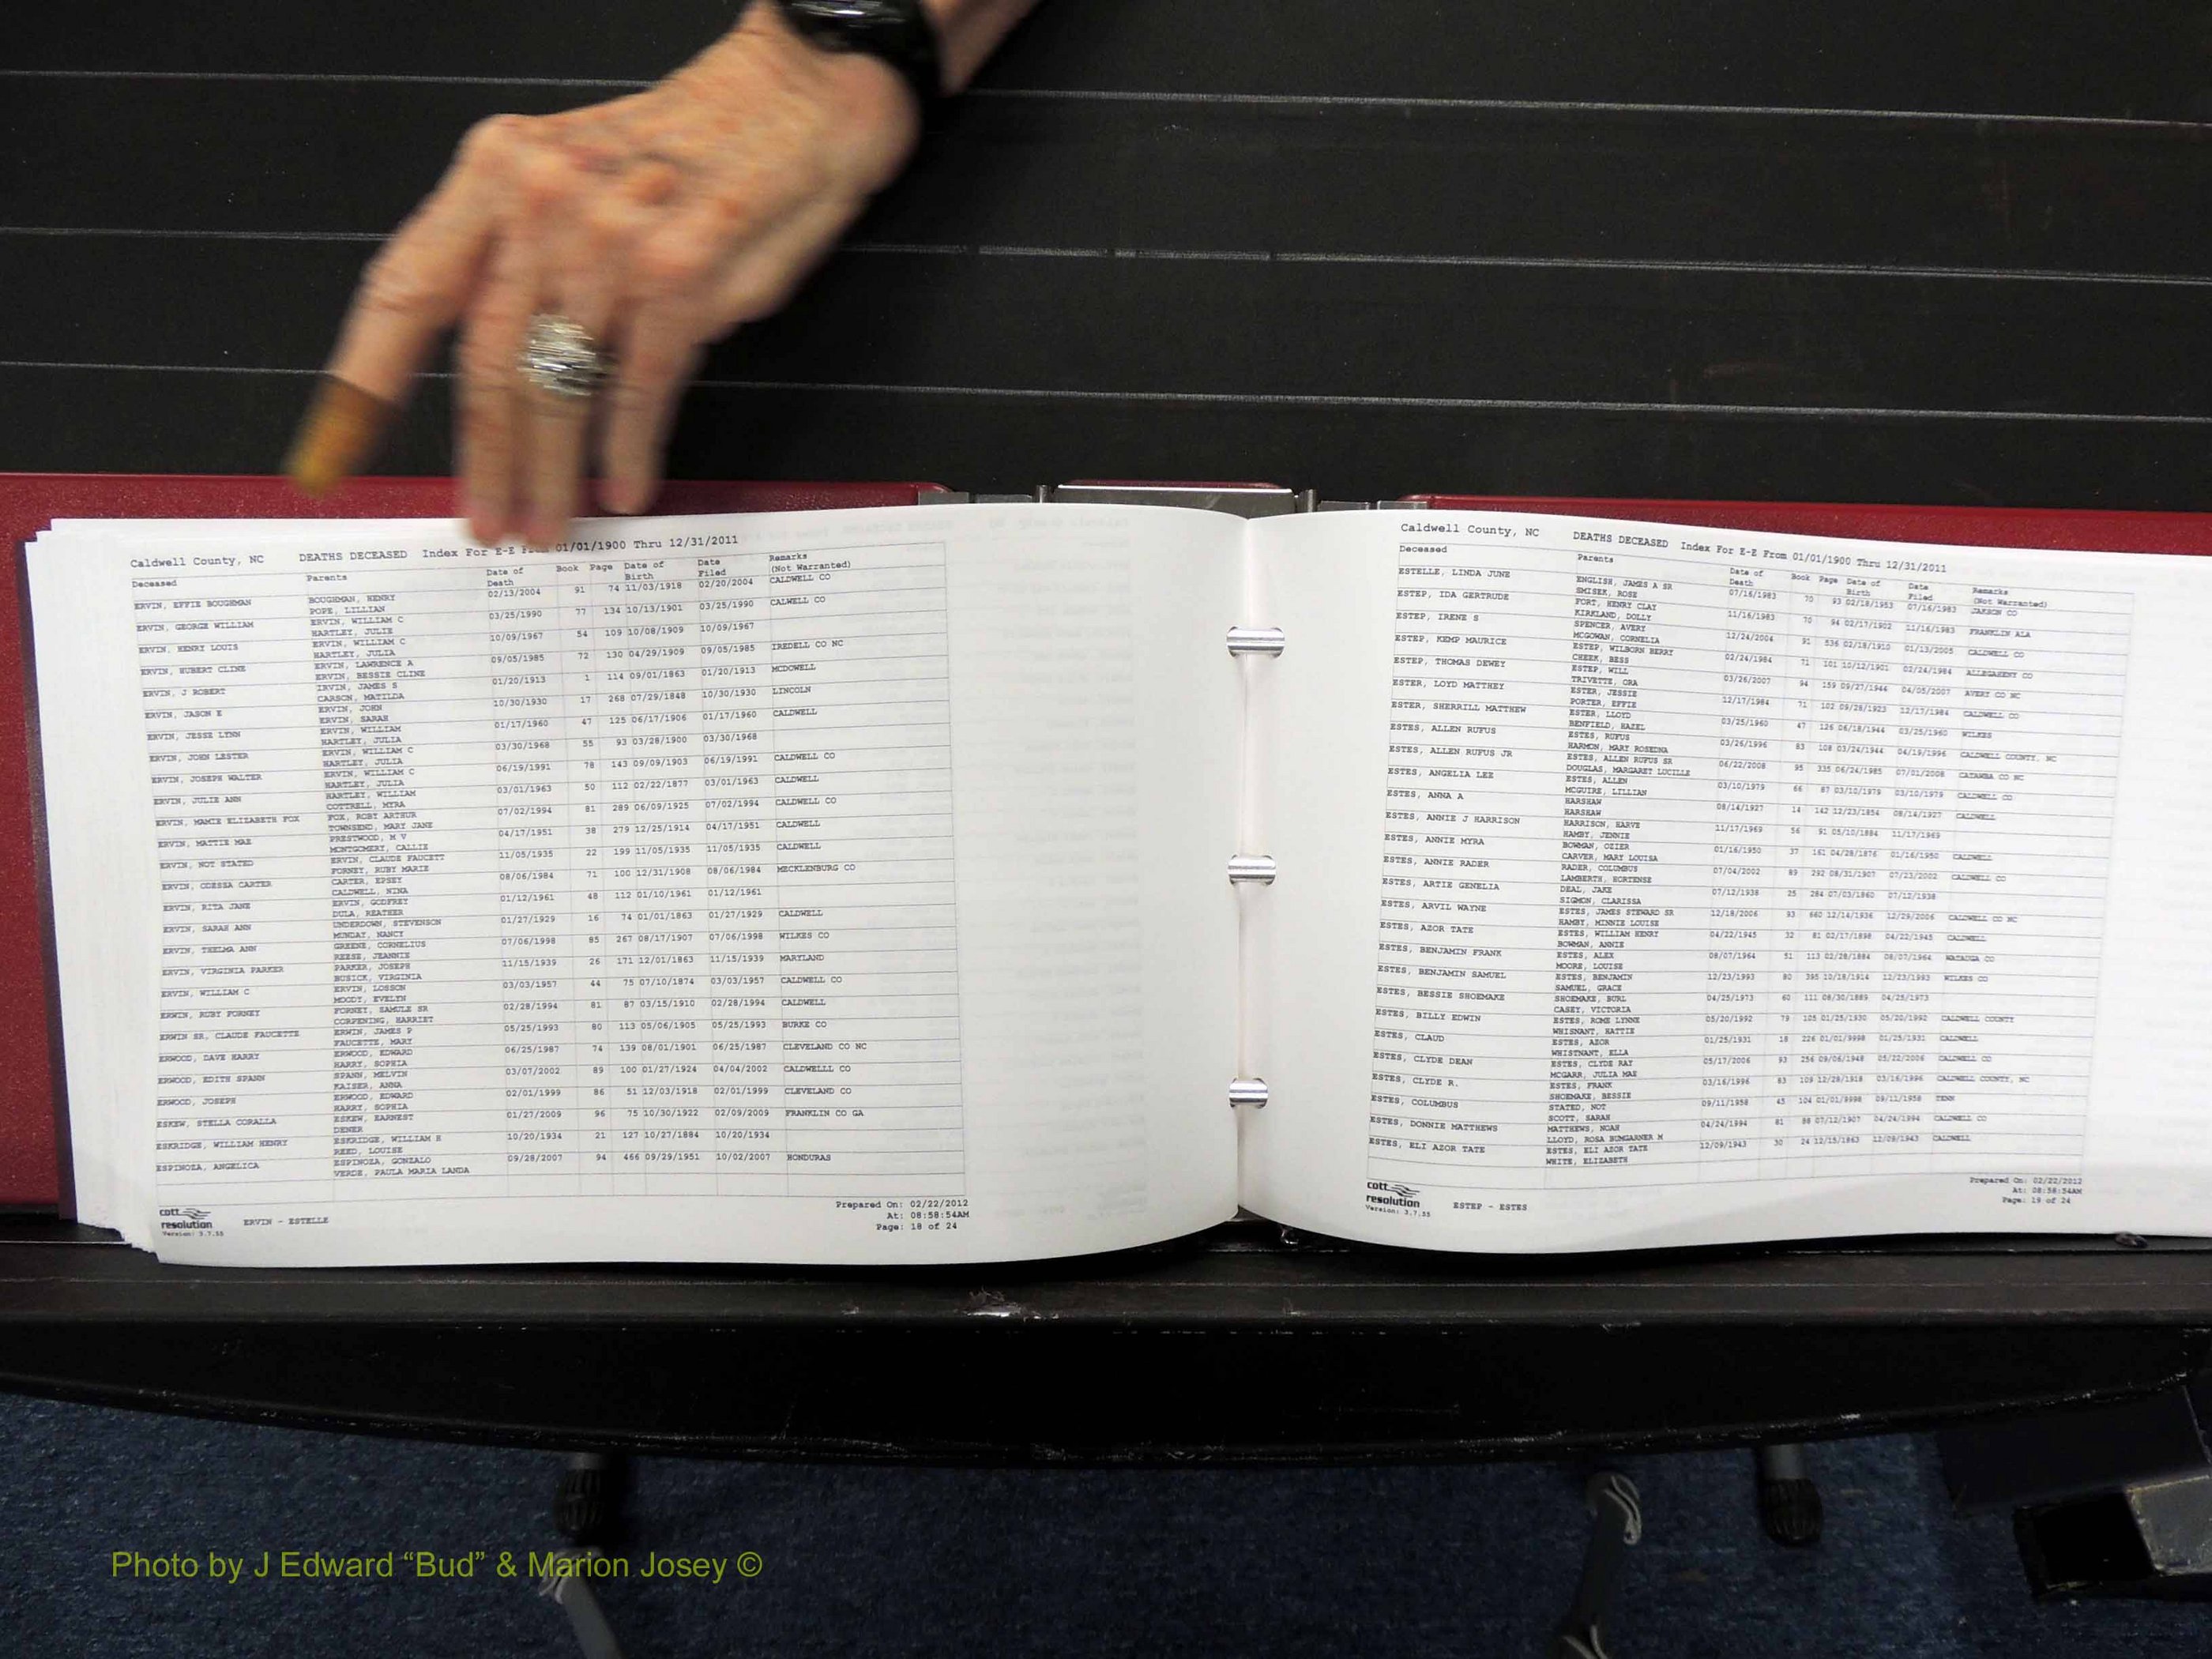 Caldwell County, NC DEATHS DECEASED Index For E-E From 01/01/1900 Thru 12/31/2011
Deceased Parents Date of Death Book Page Date of Birth Date Filed Remarks (Not Warranted)
ERVIN, EFFIE BOUGHMAN BOUGHMAN, HENRY 02/13/2004 91 74 11/03/1918 02/20/2004 CALDWELL CO
POPE, LILLIAN
ERVIN, GEORGE WILLIAM ERVIN, WILLIAM C 03/25/1990 77 134 10/13/1901 03/25/1990 CALWELL CO
HARTLEY, JULIE
ERVIN, HENRY LOUIS ERVIN, WILLIAM C 10/09/1967 54 109 10/08/1909 10/09/1967
HARTLEY, JULIA
ERVIN, HUBERT CLINE ERVIN, LAWRENCE A 09/05/1985 72 130 04/29/1909 09/05/1985 IREDELL CO NC
ERVIN, BESSIE CLINE
ERVIN, J ROBERT IRVIN, JAMES S 01/20/1913 1 114 09/01/1863 01/20/1913 MCDOWELL
CARSON, MATILDA
ERVIN, JASON E ERVIN, JOHN 10/30/1930 17 268 07/29/1848 10/30/1930 LINCOLN
ERVIN, SARAH
ERVIN, JESSE LYNN ERVIN, WILLIAM 01/17/1960 47 125 06/17/1906 01/17/1960 CALDWELL
HARTLEY, JULIA
ERVIN, JOHN LESTER ERVIN, WILLIAM C 03/30/1968 55 93 03/28/1900 03/30/1968
HARTLEY, JULIA
ERVIN, JOSEPH WALTER ERVIN, WILLIAM C 06/19/1991 78 143 09/09/1903 06/19/1991 CALDWELL CO
HARTLEY, JULIA
ERVIN, JULIE ANN HARTLEY, WILLIAM 03/01/1963 50 112 02/22/1877 03/01/1963 CALDWELL
COTTRELL, MYRA
ERVIN, MAMIE ELIZABETH FOX FOX, ROBY ARTHUR 07/02/1994 81 289 06/09/1925 07/02/1994 CALDWELL CO
TOWNSEND, MARY JANE
ERVIN, MATTIE MAE PRESTWOOD, M V 04/17/1951 38 279 12/25/1914 04/17/1951 CALDWELL
MONTGOMERY, CALLIE
ERVIN, NOT STATED ERVIN, CLAUDE FAUCETT 11/05/1935 22 199 11/05/1935 11/05/1935 CALDWELL
FORNEY, RUBY MARIE
ERVIN, ODESSA CARTER CARTER, EPSEY 08/06/1984 71 100 12/31/1908 08/06/1984 MECKLENBURG CO
CALDWELL, NINA
ERVIN, RITA JANE ERVIN, GODFREY 01/12/1961 48 112 01/10/1961 01/12/1961
DULA, REATHER
ERVIN, SARAH ANN UNDERDOWN, STEVENSON 01/27/1929 16 74 01/01/1863 01/27/1929 CALDWELL
MUNDAY, NANCY
ERVIN, THELMA ANN GREENE, CORNELIUS 07/06/1998 85 267 08/17/1907 07/06/1998 WILKES CO
REESE, JEANNIE
ERVIN, VIRGINIA PARKER PARKER, JOSEPH 11/15/1939 26 171 12/01/1863 11/15/1939 MARYLAND
BUSICK, VIRGINIA
ERVIN, WILLIAM C ERVIN, LOSSON 03/03/1957 44 75 07/10/1874 03/03/1957 CALDWELL CO
MOODY, EVELYN
ERWIN, RUBY FORNEY FORNEY, SAMULE SR 02/28/1994 81 87 03/15/1910 02/28/1994 CALDWELL
CORPENING, HARRIET
ERWIN SR, CLAUDE FAUCETTE ERWIN, JAMES P 05/25/1993 80 113 05/06/1905 05/25/1993 BURKE CO
FAUCETTE, MARY
ERWOOD, DAVE HARRY ERWOOD, EDWARD 06/25/1987 74 139 08/01/1901 06/25/1987 CLEVELAND CO NC
HARRY, SOPHIA
ERWOOD, EDITH SPANN SPANN, MELVIN 03/07/2002 89 100 01/27/1924 04/04/2002 CALDWELLL CO
KAISER, ANNA
ERWOOD, JOSEPH ERWOOD, EDWARD 02/01/1999 86 51 12/03/1918 02/01/1999 CLEVELAND CO
HARRY, SOPHIA
ESKEW, STELLA CORALLA ESKEW, EARNEST 01/27/2009 96 75 10/30/1922 02/09/2009 FRANKLIN CO GA
DENER
ESKRIDGE, WILLIAM HENRY ESKRIDGE, WILLIAM H 10/20/1934 21 127 10/27/1884 10/20/1934
REED, LOUISE
ESPINOZA, ANGELICA ESPINOZA, GONZALO 09/28/2007 94 466 09/29/1951 10/02/2007 HONDURAS
VERDE, PAULA MARIA LANDA
cott resolution
Version: 3.7.55
ERVIN - ESTELLE
Prepared On: 02/22/2012
At: 08:58:54AM
Page: 18 of 24
Caldwell County, NC DEATHS DECEASED Index For E-E From 01/01/1900 Thru 12/31/2011
Deceased Parents Date of Death Book Page Date of Birth Date Filed Remarks (Not Warranted)
ESTELLE, LINDA JUNE ENGLISH, JAMES A SR 07/16/1983 70 93 02/18/1953 07/16/1983 JAKSON CO
SMISEK, ROSE
ESTEP, IDA GERTRUDE FORT, HENRY CLAY 11/16/1983 70 94 02/17/1902 11/16/1983 FRANKLIN ALA
KIRKLAND, DOLLY
ESTEP, IRENE S SPENCER, AVERY 12/24/2004 91 536 02/18/1910 01/13/2005 CALDWELL CO
MCGOWAN, CORNELIA
ESTEP, KEMP MAURICE ESTEP, WILBORN BERRY 02/24/1984 71 101 10/12/1901 02/24/1984 ALLEGAHENY CO
CHEEK, BESS
ESTEP, THOMAS DEWEY ESTEP, WILL 03/26/2007 94 159 09/27/1944 04/05/2007 AVERY CO NC
TRIVETTE, ORA
ESTER, LOYD MATTHEY ESTER, JESSIE 12/17/1984 71 102 09/28/1923 12/17/1984 CALDWELL CO
PORTER, EFFIE
ESTER, SHERRILL MATTHEW ESTER, LLOYD 03/25/1960 47 126 06/18/1944 03/25/1960 WILKES
BENFIELD, HAZEL
ESTES, ALLEN RUFUS ESTES, RUFUS 03/26/1996 83 108 03/24/1944 04/19/1996 CALDWELL COUNTY, NC
HARMON, MARY ROSEDNA
ESTES, ALLEN RUFUS JR ESTES, ALLEN RUFUS SR 06/22/2008 95 335 06/24/1985 07/01/2008 CATAWBA CO NC
DOUGLAS, MARGARET LUCILLE
ESTES, ANGELIA LEE ESTES, ALLEN 03/10/1979 66 87 03/10/1979 03/10/1979 CALDWELL CO
MCGUIRE, LILLIAN
ESTES, ANNA A HARSHAW 08/14/1927 14 142 12/23/1854 08/14/1927 CALDWELL
HARSHAW
ESTES, ANNIE J HARRISON HARRISON, HARVE 11/17/1969 56 91 05/10/1884 11/17/1969
HAMBY, JENNIE
ESTES, ANNIE MYRA BOWMAN, OZIER 01/16/1950 37 161 04/28/1876 01/16/1950 CALDWELL
CARVER, MARY LOUISA
ESTES, ANNIE RADER RADER, COLUMBUS 07/04/2002 89 292 08/31/1907 07/23/2002 CALDWELL CO
LAMBERTH, HORTENSE
ESTES, ARTIE GENELIA DEAL, JAKE 07/12/1938 25 284 07/03/1860 07/12/1938
SIGMON, CLARISSA
ESTES, ARVIL WAYNE ESTES, JAMES STEWARD SR 12/18/2006 93 660 12/14/1936 12/29/2006 CALDWELL CO NC
HAMBY, MINNIE LOUISE
ESTES, AZOR TATE ESTES, WILLIAM HENRY 04/22/1945 32 81 02/17/1898 04/22/1945 CALDWELL
BOWMAN, ANNIE
ESTES, BENJAMIN FRANK ESTES, ALEX 08/07/1964 51 113 02/28/1884 08/07/1964 WATAUGA CO
MOORE, LOUISE
ESTES, BENJAMIN SAMUEL ESTES, BENJAMIN 12/23/1993 80 395 10/18/1914 12/23/1993 WILKES CO
SAMUEL, GRACE
ESTES, BESSIE SHOEMAKE SHOEMAKE, BURL 04/25/1973 60 111 08/30/1889 04/25/1973
CASEY, VICTORIA
ESTES, BILLY EDWIN ESTES, ROME LYNNE 05/20/1992 79 105 01/25/1930 05/20/1992 CALDWELL COUNTY
WHISNANT, HATTIE
ESTES, CLAUD ESTES, AZOR 01/25/1931 18 226 01/01/9998 01/25/1931 CALDWELL
WHISTNANT, ELLA
ESTES, CLYDE DEAN ESTES, CLYDE RAY 05/17/2006 93 256 09/06/1948 05/22/2006 CALDWELL CO
MCGARR, JULIA MAE
ESTES, CLYDE R. ESTES, FRANK 03/16/1996 83 109 12/28/1918 03/16/1996 CALDWELL COUNTY, NC
SHOEMAKE, BESSIE
ESTES, COLUMBUS STATED, NOT 09/11/1958 45 104 01/01/9998 09/11/1958 TENN
SCOTT, SARAH
ESTES, DONNIE MATTHEWS MATTHEWS, NOAH 04/24/1994 81 88 07/12/1907 04/24/1994 CALDWELL CO
LLOYD, ROSA BUMGARNER M
ESTES, ELI AZOR TATE ESTES, ELI AZOR TATE 12/09/1943 30 24 12/15/1863 12/09/1943 CALDWELL
WHITE, ELIZABETH
cott resolution
Version: 3.7.55
ESTEP - ESTES
Prepared On: 02/22/2012
At: 08:58:54AM
Page: 19 of 24
Photo by J Edward “Bud” & Marion Josey ©